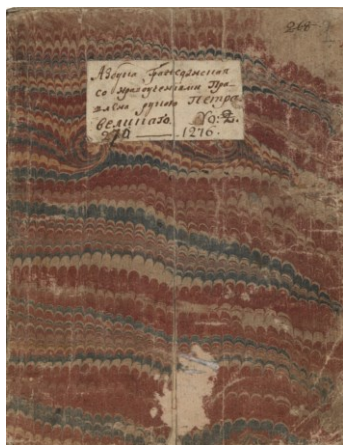 260
Азбука гражданская
со нравоучениями Пра-
влена рукою Петра
великаго. No: 2.
370 1276.